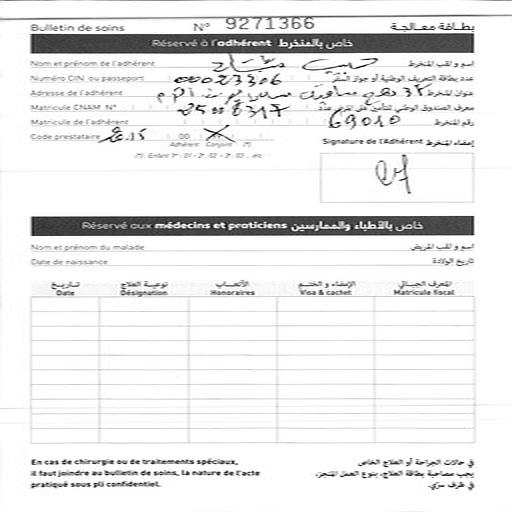 Bulletin de soins N° 9271366 بطاقة معالجة
Réservé à l'adhérent خاص بالمنخرط
Nom et prénom de l'adhérent اسم و لقب المنخرط
Numéro CIN ou passeport 00023306 عدد بطاقة التعريف الوطنية أو جواز السفر
Adresse de l'adhérent عنوان المنخرط
Matricule CNAM N° معرف الصندوق الوطني للتأمين على المرض عدد
Matricule de l'adhérent 69010 رقم المنخرط
Code prestataire 00 X
Adhérent Conjoint (*)
(*): Enfant 1er : 01 - 2e : 02 - 3e : 03 .. etc
Signature de l'Adhérent إمضاء المنخرط
Réservé aux médecins et praticiens خاص بالأطباء والممارسين
Nom et prénom du malade اسم و لقب المريض
Date de naissance تاريخ الولادة
تاريخ نوعية العلاج الأتعاب الإمضاء و الختم المعرف الجبائي
Date Désignation Honoraires Visa & cachet Matricule fiscal
En cas de chirurgie ou de traitements spéciaux,
il faut joindre au bulletin de soins, la nature de l'acte
pratiqué sous pli confidentiel.
في حالات الجراحة أو العلاج الخاص
يجب مصاحبة بطاقة العلاج، بنوع العمل المنجز،
في ظرف سري.